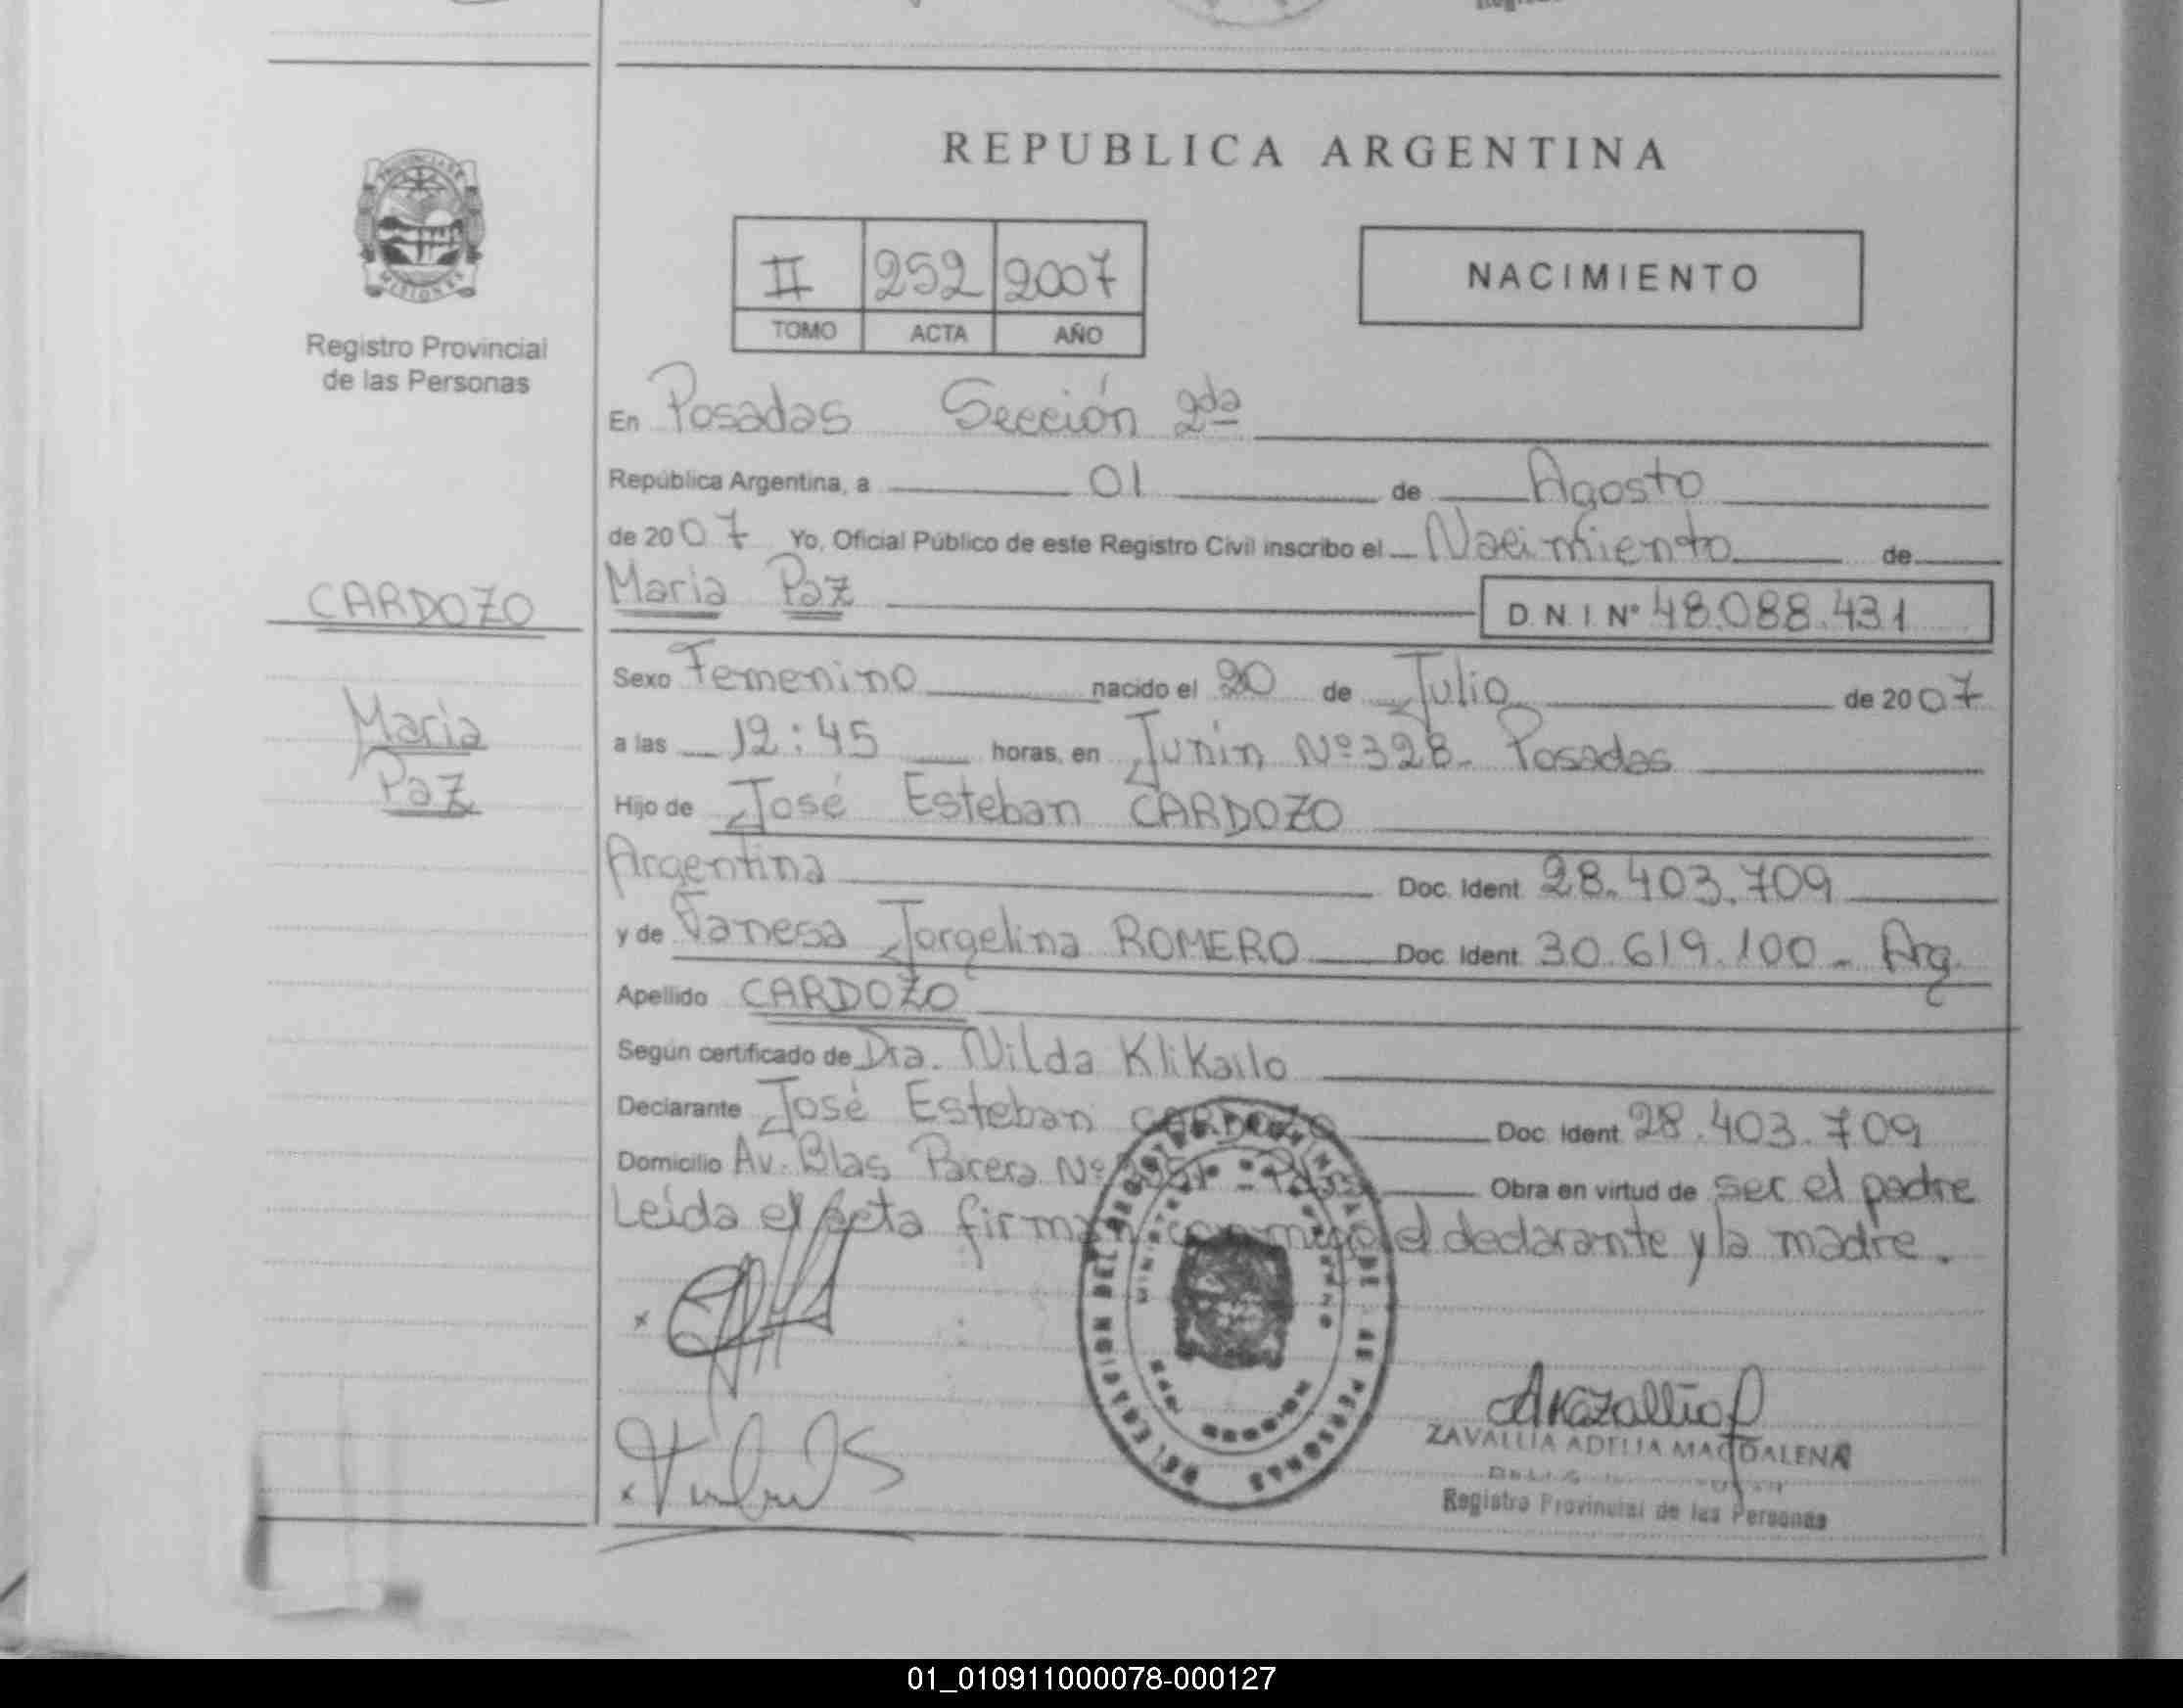 REPUBLICA ARGENTINA
PROVINCIA DE
MISIONES
Registro Provincial
de las Personas
II 252 2007
TOMO ACTA AÑO
NACIMIENTO
En Posadas Sección 2da
República Argentina, a 01 de Agosto
de 2007 Yo, Oficial Público de este Registro Civil inscribo el Nacimiento de
CARDOZO
Maria Paz D.N.I. Nº 48.088.431
Maria
Paz
Sexo Femenino nacido el 20 de Julio de 2007
a las 12:45 horas, en Junin Nº 328- Posadas
Hijo de José Esteban CARDOZO
Argentina Doc. Ident. 28.403.709
y de Vanesa Jorgelina ROMERO Doc. Ident. 30.619.100- Arg.
Apellido CARDOZO
Según certificado de Dra. Nilda Klikailo
Declarante José Esteban CARDOZO Doc. Ident. 28.403.709
Domicilio Av. Blas Parera Nº Obra en virtud de ser el padre
Leida el acta firman conmigo el declarante y la madre.
ZAVALLIA ADELIA MAGDALENA
Registro Provincial de las Personas
01_010911000078-000127